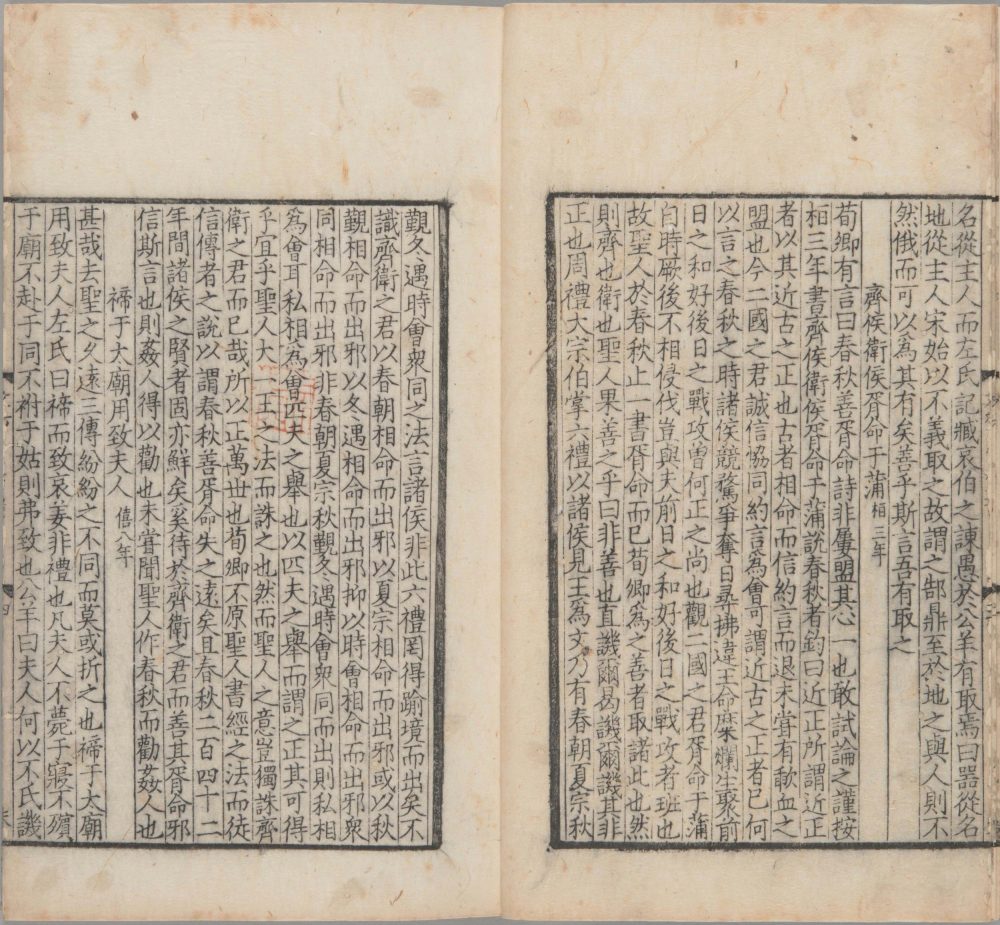 名從主人而左氏記臧哀伯之諫愚於公羊有取焉曰器從名
地從主人宋始以不義取之故謂之郜鼎至於地之與人則不
然俄而可以為其有矣善乎斯言吾有取之
齊侯衛侯胥命于蒲 桓三年
荀卿有言曰春秋善胥命詩非屢盟其心一也敢試論之謹按
桓三年書齊侯衛侯胥命于蒲說春秋者鈞曰近正所謂近正
者以其近古之正也古者相命而信約言而退未甞有歃血之
盟也今二國之君誠信協同約言爲會可謂近古之正者已何
以言之春秋之時諸侯競騖爭奪日尋拂違王命糜爛生聚前
日之和好後日之戰攻曾何正之尚也觀二國之君胥命于蒲
自時厥後不相侵伐豈與夫前日之和好後日之戰攻者班也
故聖人於春秋止一書胥命而已荀卿爲之善者取諸此也然
則齊也衛也聖人果善之乎曰非善也直譏爾曷譏爾譏其非
正也周禮大宗伯掌六禮以諸侯見王爲文乃有春朝夏宗秋
覲冬遇時會衆同之法言諸侯非此六禮罔得踰境而出矣不
識齊衛之君以春朝相命而出邪以夏宗相命而出邪或以秋
覲相命而出邪以冬遇相命而出邪抑以時會相命而出邪衆
同相命而出邪非春朝夏宗秋覲冬遇時會衆同而出則私相
爲會耳私相爲會匹夫之舉也以匹夫之舉而謂之正其可得
乎宜乎聖人大一王之法而誅之也然而聖人之意豈獨誅齊
衛之君而已哉所以正萬世也荀卿不原聖人書經之法而徒
信傳者之說以謂春秋善胥命失之遠矣且春秋二百四十二
年間諸侯之賢者固亦鮮矣奚待於齊衛之君而善其胥命邪
信斯言也則姦人得以勸也未甞聞聖人作春秋而勸姦人也
禘于大廟用致夫人 僖八年
甚哉去聖之夂遠三傳紛紛之不同而莫或折之也禘于大廟
用致夫人左氏曰禘而致哀姜非禮也凡夫人不薨于寢不殯
于廟不赴于同不祔于姑則弗致也公羊曰夫人何以不氏譏